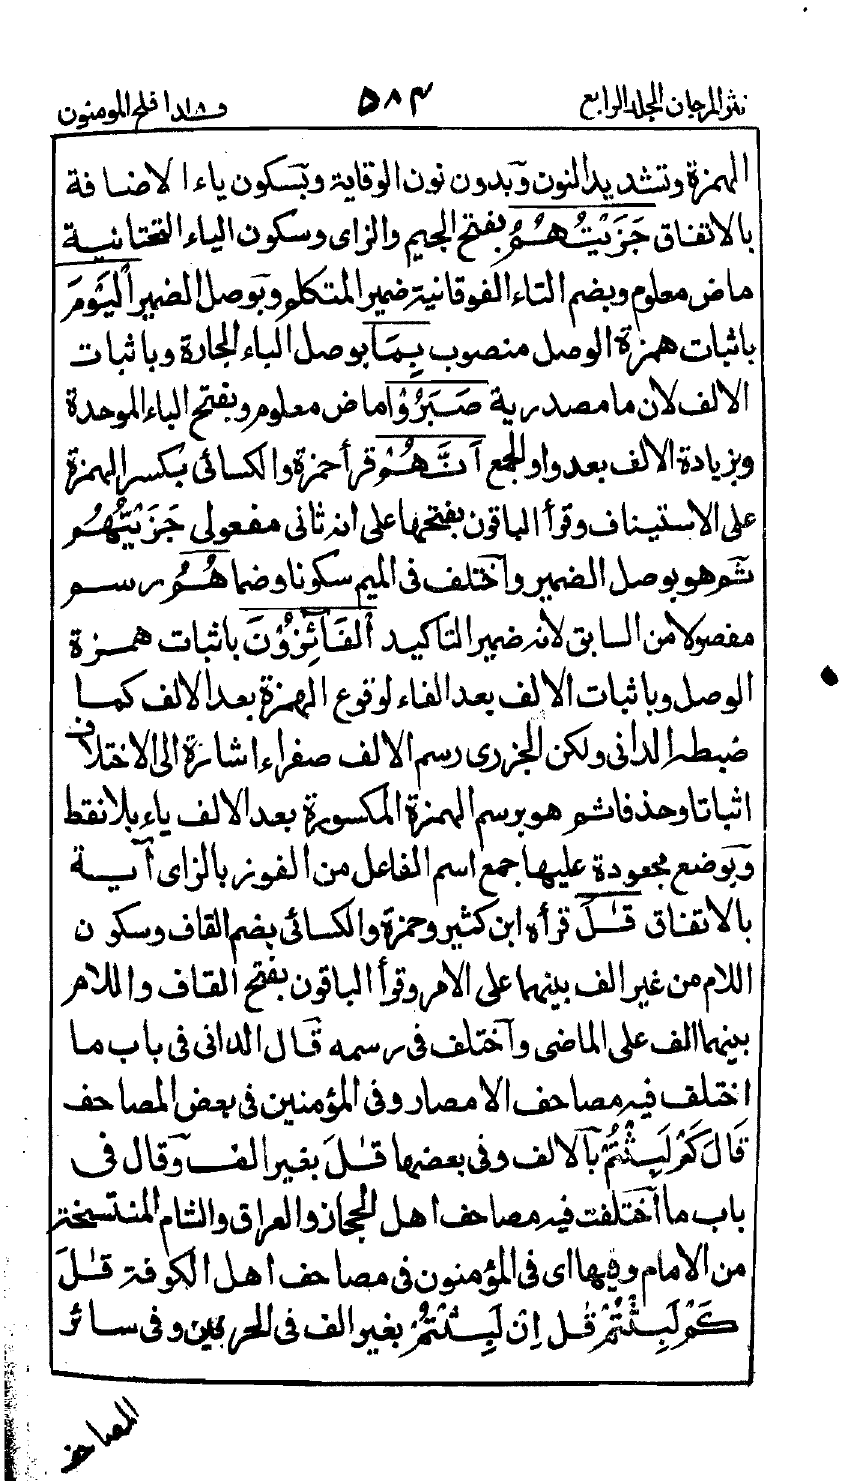 نثر المرجان المجلد الرابع ۵۸۴ قد افلح المومنون
الهمزة وتشديد النون وبدون نون الوقاية وبسكون ياء الاضافة
بالاتفاق جَزَيْتُهُمُ بفتح الجيم والزاى وسكون الياء التحتانية
ماض معلوم وبضم التاء الفوقانية ضمير المتكلم وبوصل الضمير اَلْيَوْمَ
باثبات همزة الوصل منصوب بِمَا بوصل الباء الجارة وباثبات
الالف لان ما مصدرية صَبَرُوْا ماض معلوم وبفتح الباء الموحدة
وبزيادة الالف بعد واو الجمع اَنَّهُمْ قرأ حمزة والكسائى بكسر الهمزة
على الاستيناف وقرأ الباقون بفتحها على انه ثانى مفعولى جَزَيْتُهُمْ
ثم هو بوصل الضمير واختلف فى الميم سكونا وضما هُمُ رسم
مفصولا من السابق لانه ضمير التاكيد اَلْفَآئِزُوْنَ باثبات همزة
الوصل وباثبات الالف بعد الفاء لوقوع الهمزة بعد الالف كما
ضبطه الدانى ولكن الجزرى رسم الالف صفراء اشارة الى الاختلاف
اثباتا وحذفا ثم هو برسم الهمزة المكسورة بعد الالف ياء بلا نقط
وبوضع مجعودة عليها جمع اسم الفاعل من الفوز بالزاى اٰية
بالاتفاق قٰلَ قرأه ابن كثير وحمزة والكسائى بضم القاف وسكون
اللام من غير الف بينهما على الامر وقرأ الباقون بفتح القاف واللام
بينهما الف على الماضى واختلف فى رسمه قال الدانى فى باب ما
اختلف فيه مصاحف الامصار وفى المؤمنين فى بعض المصاحف
قَالَ كَمْ لَبِثْتُمْ بالالف وفى بعضها قٰلَ بغير الف وقال فى
باب ما اختلفت فيه مصاحف اهل الحجاز والعراق والشام المنتسخة
من الامام وفيها اى فى المؤمنون فى مصاحف اهل الكوفة قٰلَ
كَمْ لَبِثْتُمْ قٰل اِنْ لَبِثْتُمْ بغير الف فى الحرفين وفى سائر
المصاحف